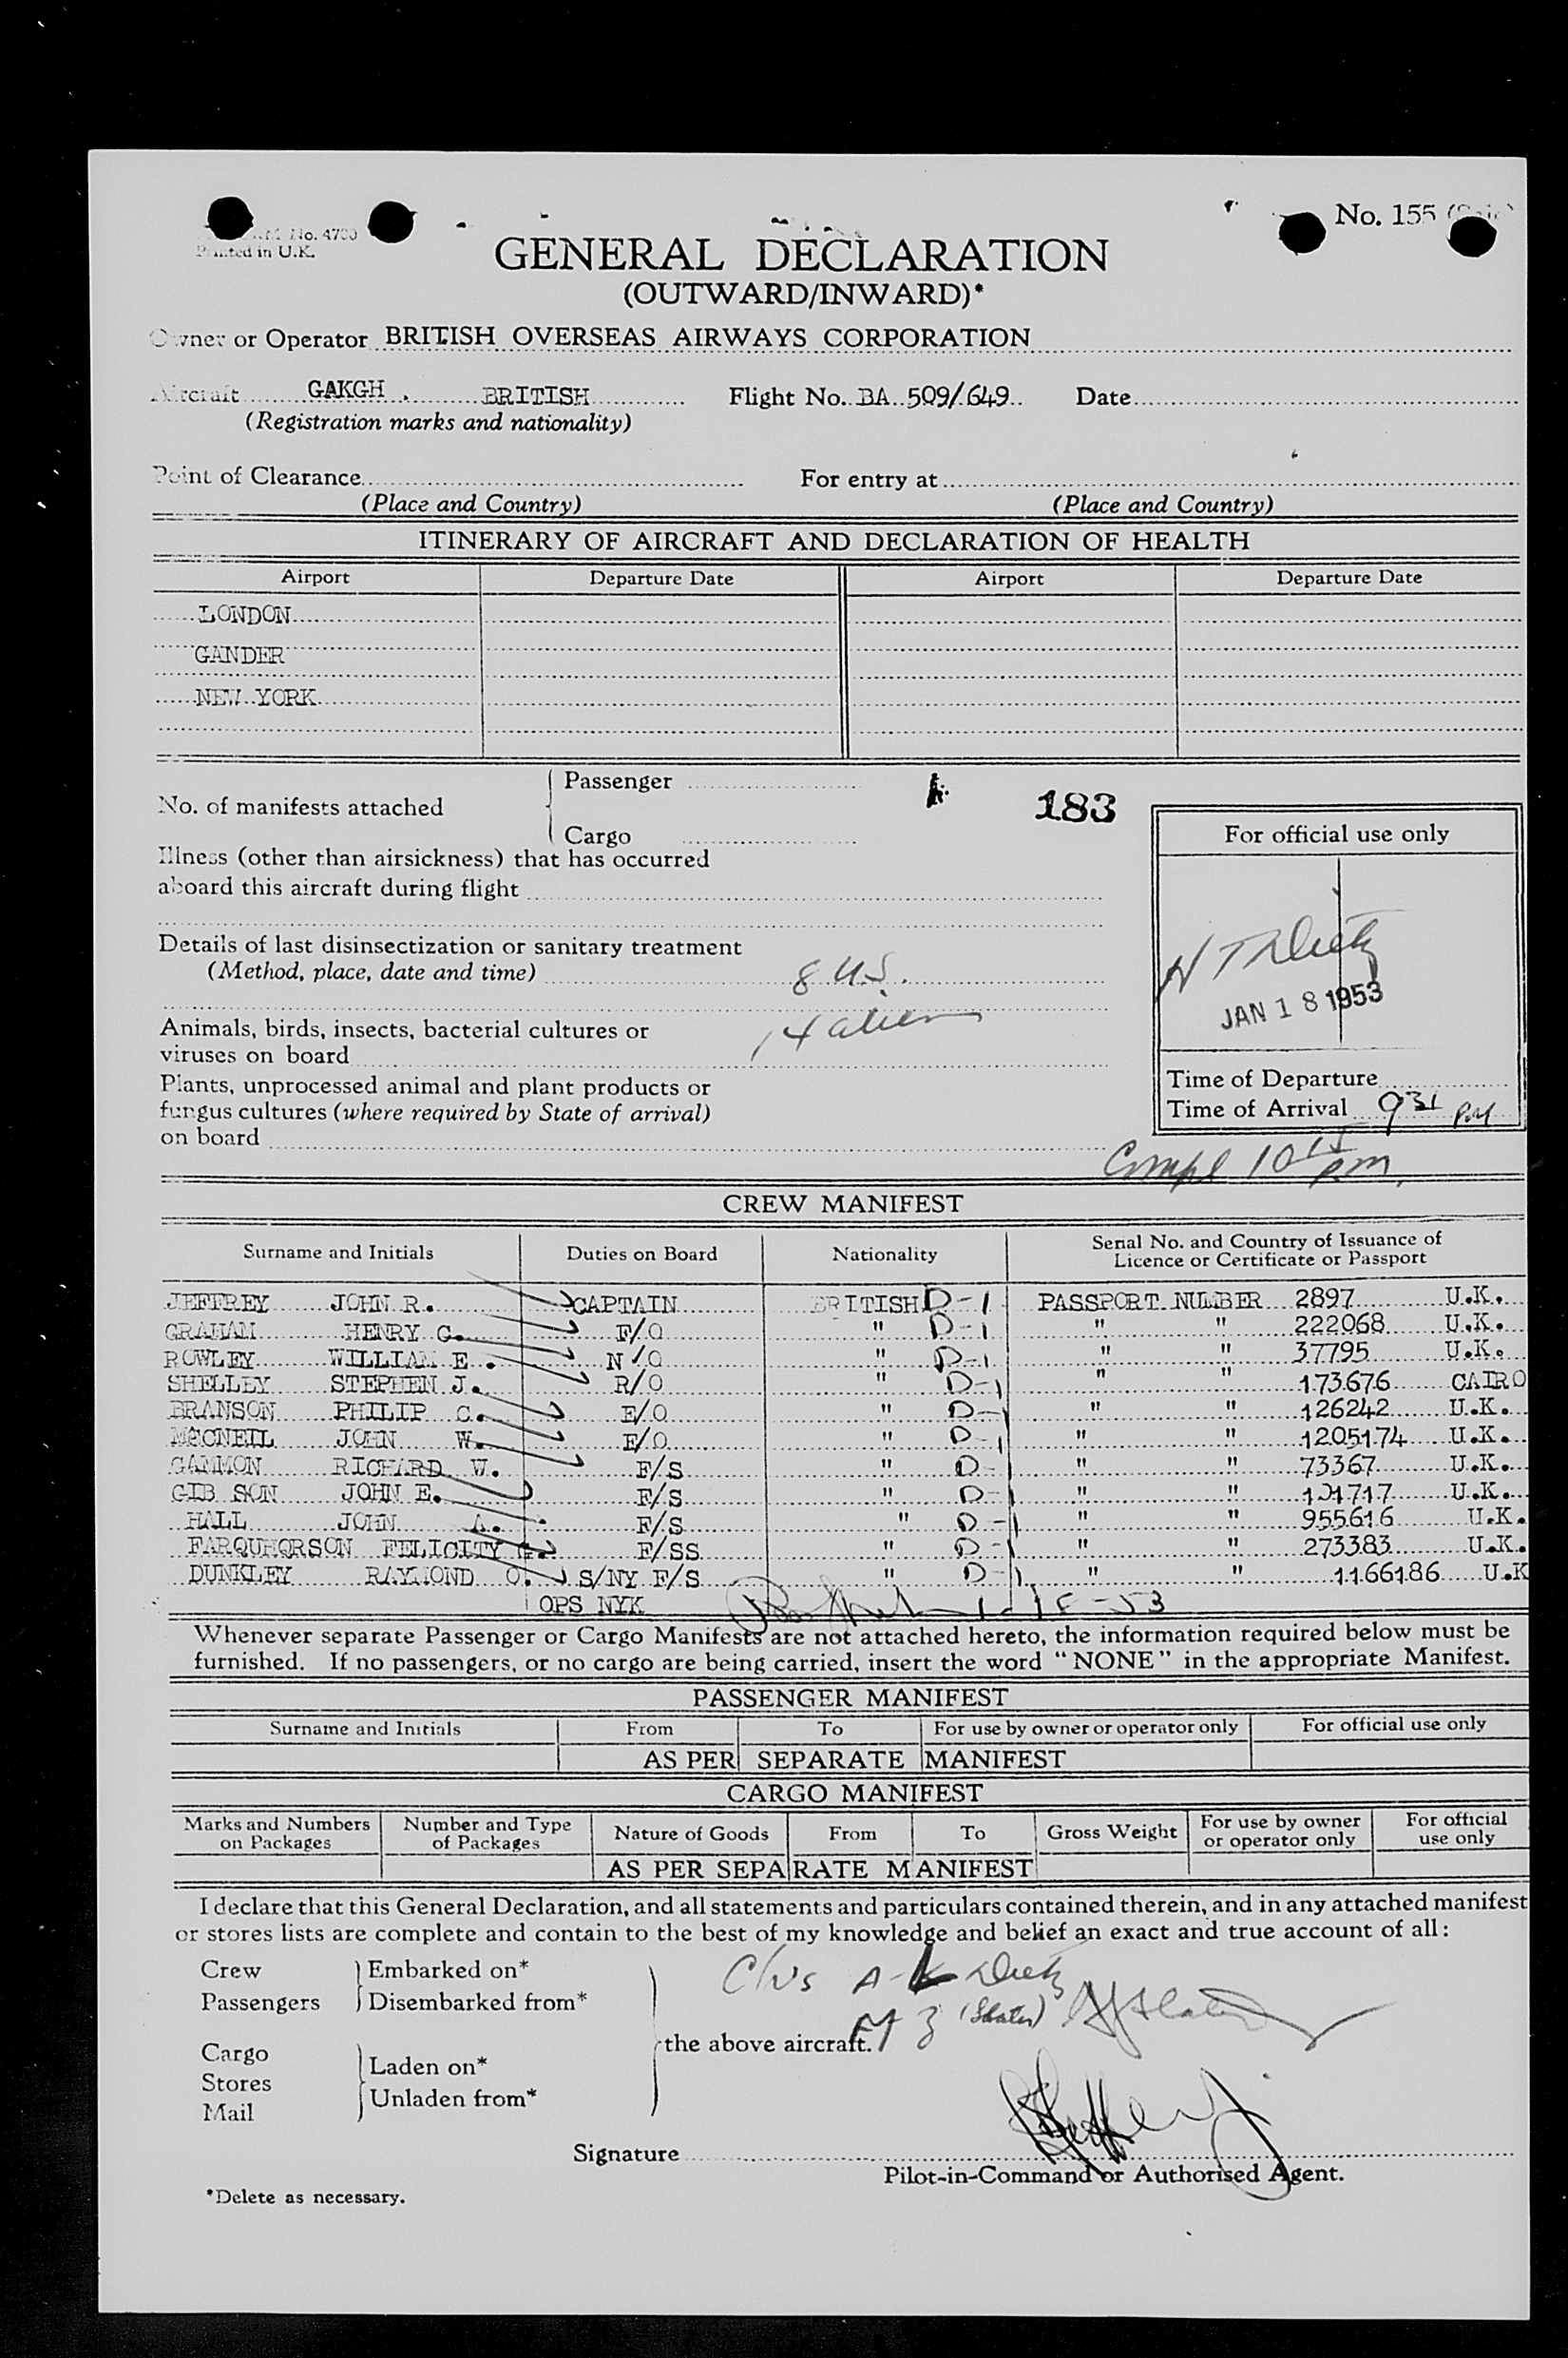 No. 155
No. 4700
Printed in U.K.
GENERAL DECLARATION
(OUTWARD/INWARD)*
Owner or Operator BRITISH OVERSEAS AIRWAYS CORPORATION
Aircraft GAKGH . BRITISH Flight No. BA 509/649 Date
(Registration marks and nationality)
Point of Clearance For entry at
(Place and Country) (Place and Country)
ITINERARY OF AIRCRAFT AND DECLARATION OF HEALTH
Airport Departure Date Airport Departure Date
LONDON
GANDER
NEW YORK
No. of manifests attached
Passenger
Cargo
183
For official use only
Illness (other than airsickness) that has occurred
aboard this aircraft during flight
Details of last disinsectization or sanitary treatment
(Method, place, date and time) 8 U.S.
JAN 18 1953
Animals, birds, insects, bacterial cultures or
viruses on board 14 alien
Plants, unprocessed animal and plant products or
fungus cultures (where required by State of arrival)
on board
Time of Departure
Time of Arrival 931 PM
Compl 10 15 pm.
CREW MANIFEST
Surname and Initials Duties on Board Nationality Serial No. and Country of Issuance of
Licence or Certificate or Passport
JEFFREY JOHN R. CAPTAIN BRITISH D-1 PASSPORT NUMBER 2897 U.K.
GRAHAM HENRY G. F/O " D-1 " " 222068 U.K.
ROWLEY WILLIAM E. N/O " D-1 " " 37795 U.K.
SHELLEY STEPHEN J. R/O " D-1 " " 173676 CAIRO
BRANSON PHILIP C. E/O " D-1 " " 126242 U.K.
MCCNEIL JOHN W. E/O " D-1 " " 1205174 U.K.
GAMMON RICHARD W. F/S " D-1 " " 73367 U.K.
GIB SON JOHN E. F/S " D-1 " " 101717 U.K.
HALL JOHN A. F/S " D-1 " " 955616 U.K.
FARQUHORSON FELICITY G. F/SS " D-1 " " 273383 U.K.
DUNKLEY RAYMOND O. S/NY F/S " D-1 " " 1166186 U.K
OPS NYK 1-18-53
Whenever separate Passenger or Cargo Manifests are not attached hereto, the information required below must be
furnished. If no passengers, or no cargo are being carried, insert the word "NONE" in the appropriate Manifest.
PASSENGER MANIFEST
Surname and Initials From To For use by owner or operator only For official use only
AS PER SEPARATE MANIFEST
CARGO MANIFEST
Marks and Numbers on Packages Number and Type of Packages Nature of Goods From To Gross Weight For use by owner or operator only For official use only
AS PER SEPARATE MANIFEST
I declare that this General Declaration, and all statements and particulars contained therein, and in any attached manifest
or stores lists are complete and contain to the best of my knowledge and belief an exact and true account of all:
Crew Embarked on*
Passengers Disembarked from*
(Slater)
the above aircraft.
Cargo
Stores Laden on*
Mail Unladen from*
Signature
Pilot-in-Command or Authorised Agent.
*Delete as necessary.